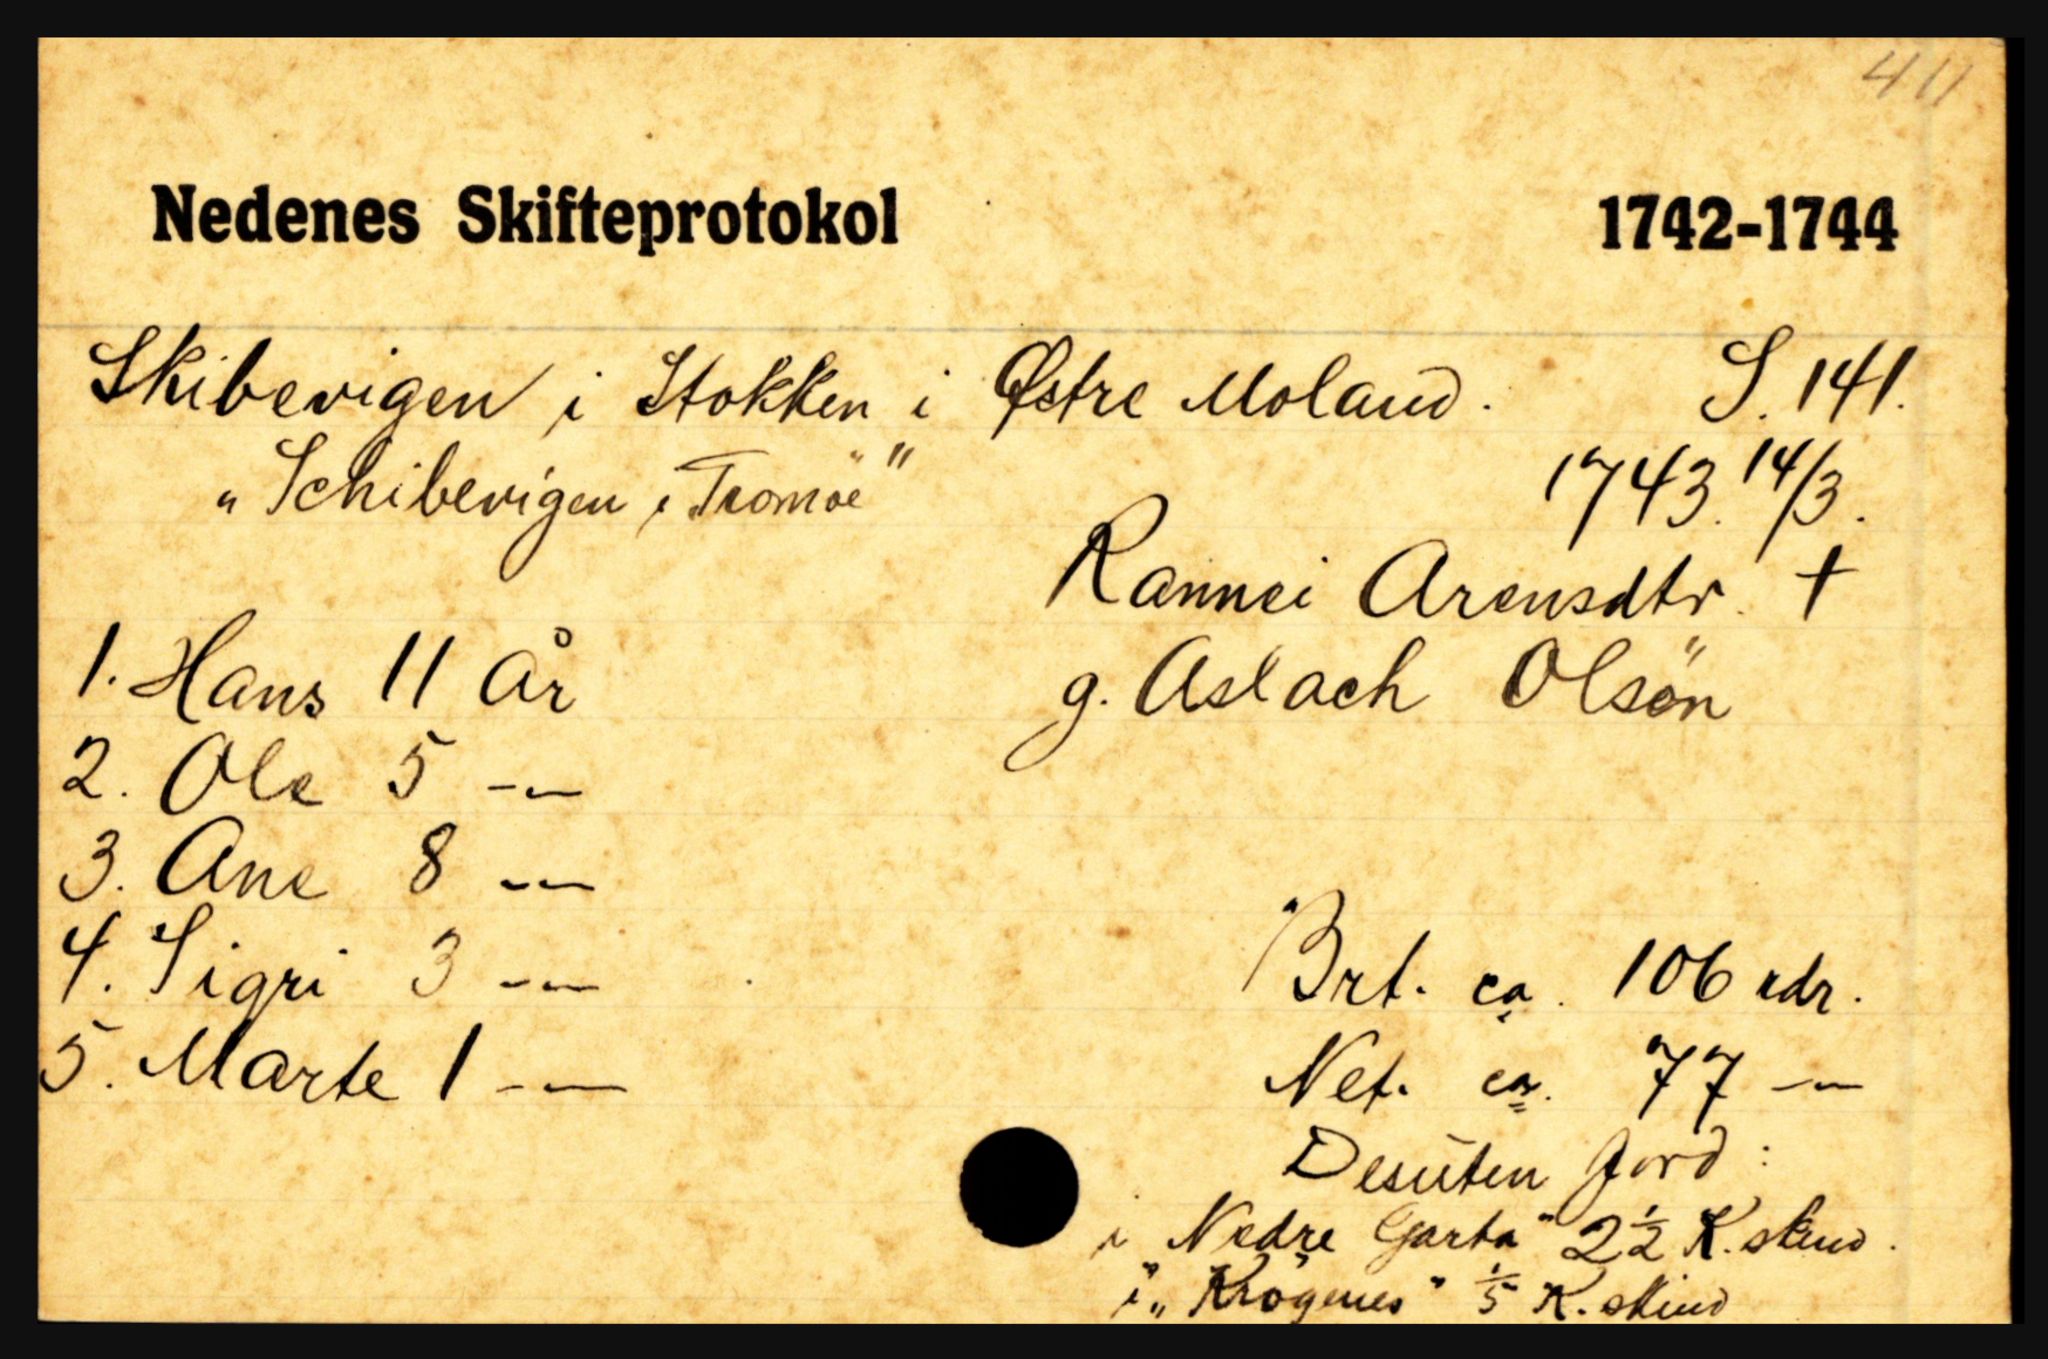 411
Nedenes Skifteprotokol 1742-1744
Skibevigen i Stokken i Østre Moland. S. 141.
„Schibevigen i Tromöe" 1743. 14/3.
Rannei Arensdtr. †
1. Hans 11 År g. Aslach Olsön
2. Ole 5 -„-
3. Ane 8 -„-
4. Sigri 3 -„- Brt. ca. 106 rdr.
5. Marte 1 -„- Net. ca. 77 -„-
Desuten jord:
i „Nedre Garta" 2½ K. skind.
i „Krögenes" 1/5 K. skind